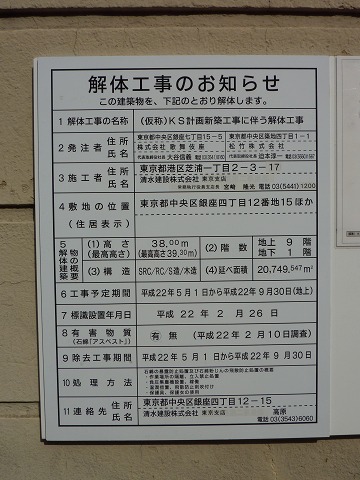 解体工事のお知らせ
この建築物を、下記のとおり解体します。
1 解体工事の名称 (仮称)KS計画新築工事に伴う解体工事
2 発注者 住所 氏名
東京都中央区銀座七丁目15-5 東京都中央区築地四丁目1-1
株式会社 歌舞伎座 松竹株式会社
代表取締役社長 大谷信義 代表取締役社長 迫本淳一
3 施工者 住所 氏名
東京都港区芝浦一丁目2-3-17
清水建設株式会社 東京支店
宮崎 陽光 電話 03(5441)1200
4 敷地の位置 (住居表示) 東京都中央区銀座四丁目12番地15ほか
5 解体建築物の概要
(1)高さ (最高高さ) 38.00m (最高高さ39.30m) (2)階数 地上 9 階 地下 1 階
(3)構造 SRC/RC/S造/木造 (4)延べ面積 20,749.547㎡
6 工事予定期間 平成22年5月1日から平成22年9月30日(地上)
7 標識設置年月日 平成 22年 2月 26日
8 有害物質 (石綿「アスベスト」) 有 無 (平成22年2月10日調査)
9 除去工事期間 平成22年5月1日から平成22年9月30日
10 処理方法
11 連絡先 住所 氏名
東京都中央区銀座四丁目12-15
清水建設株式会社 東京支店 高原
電話 03(3543)6060